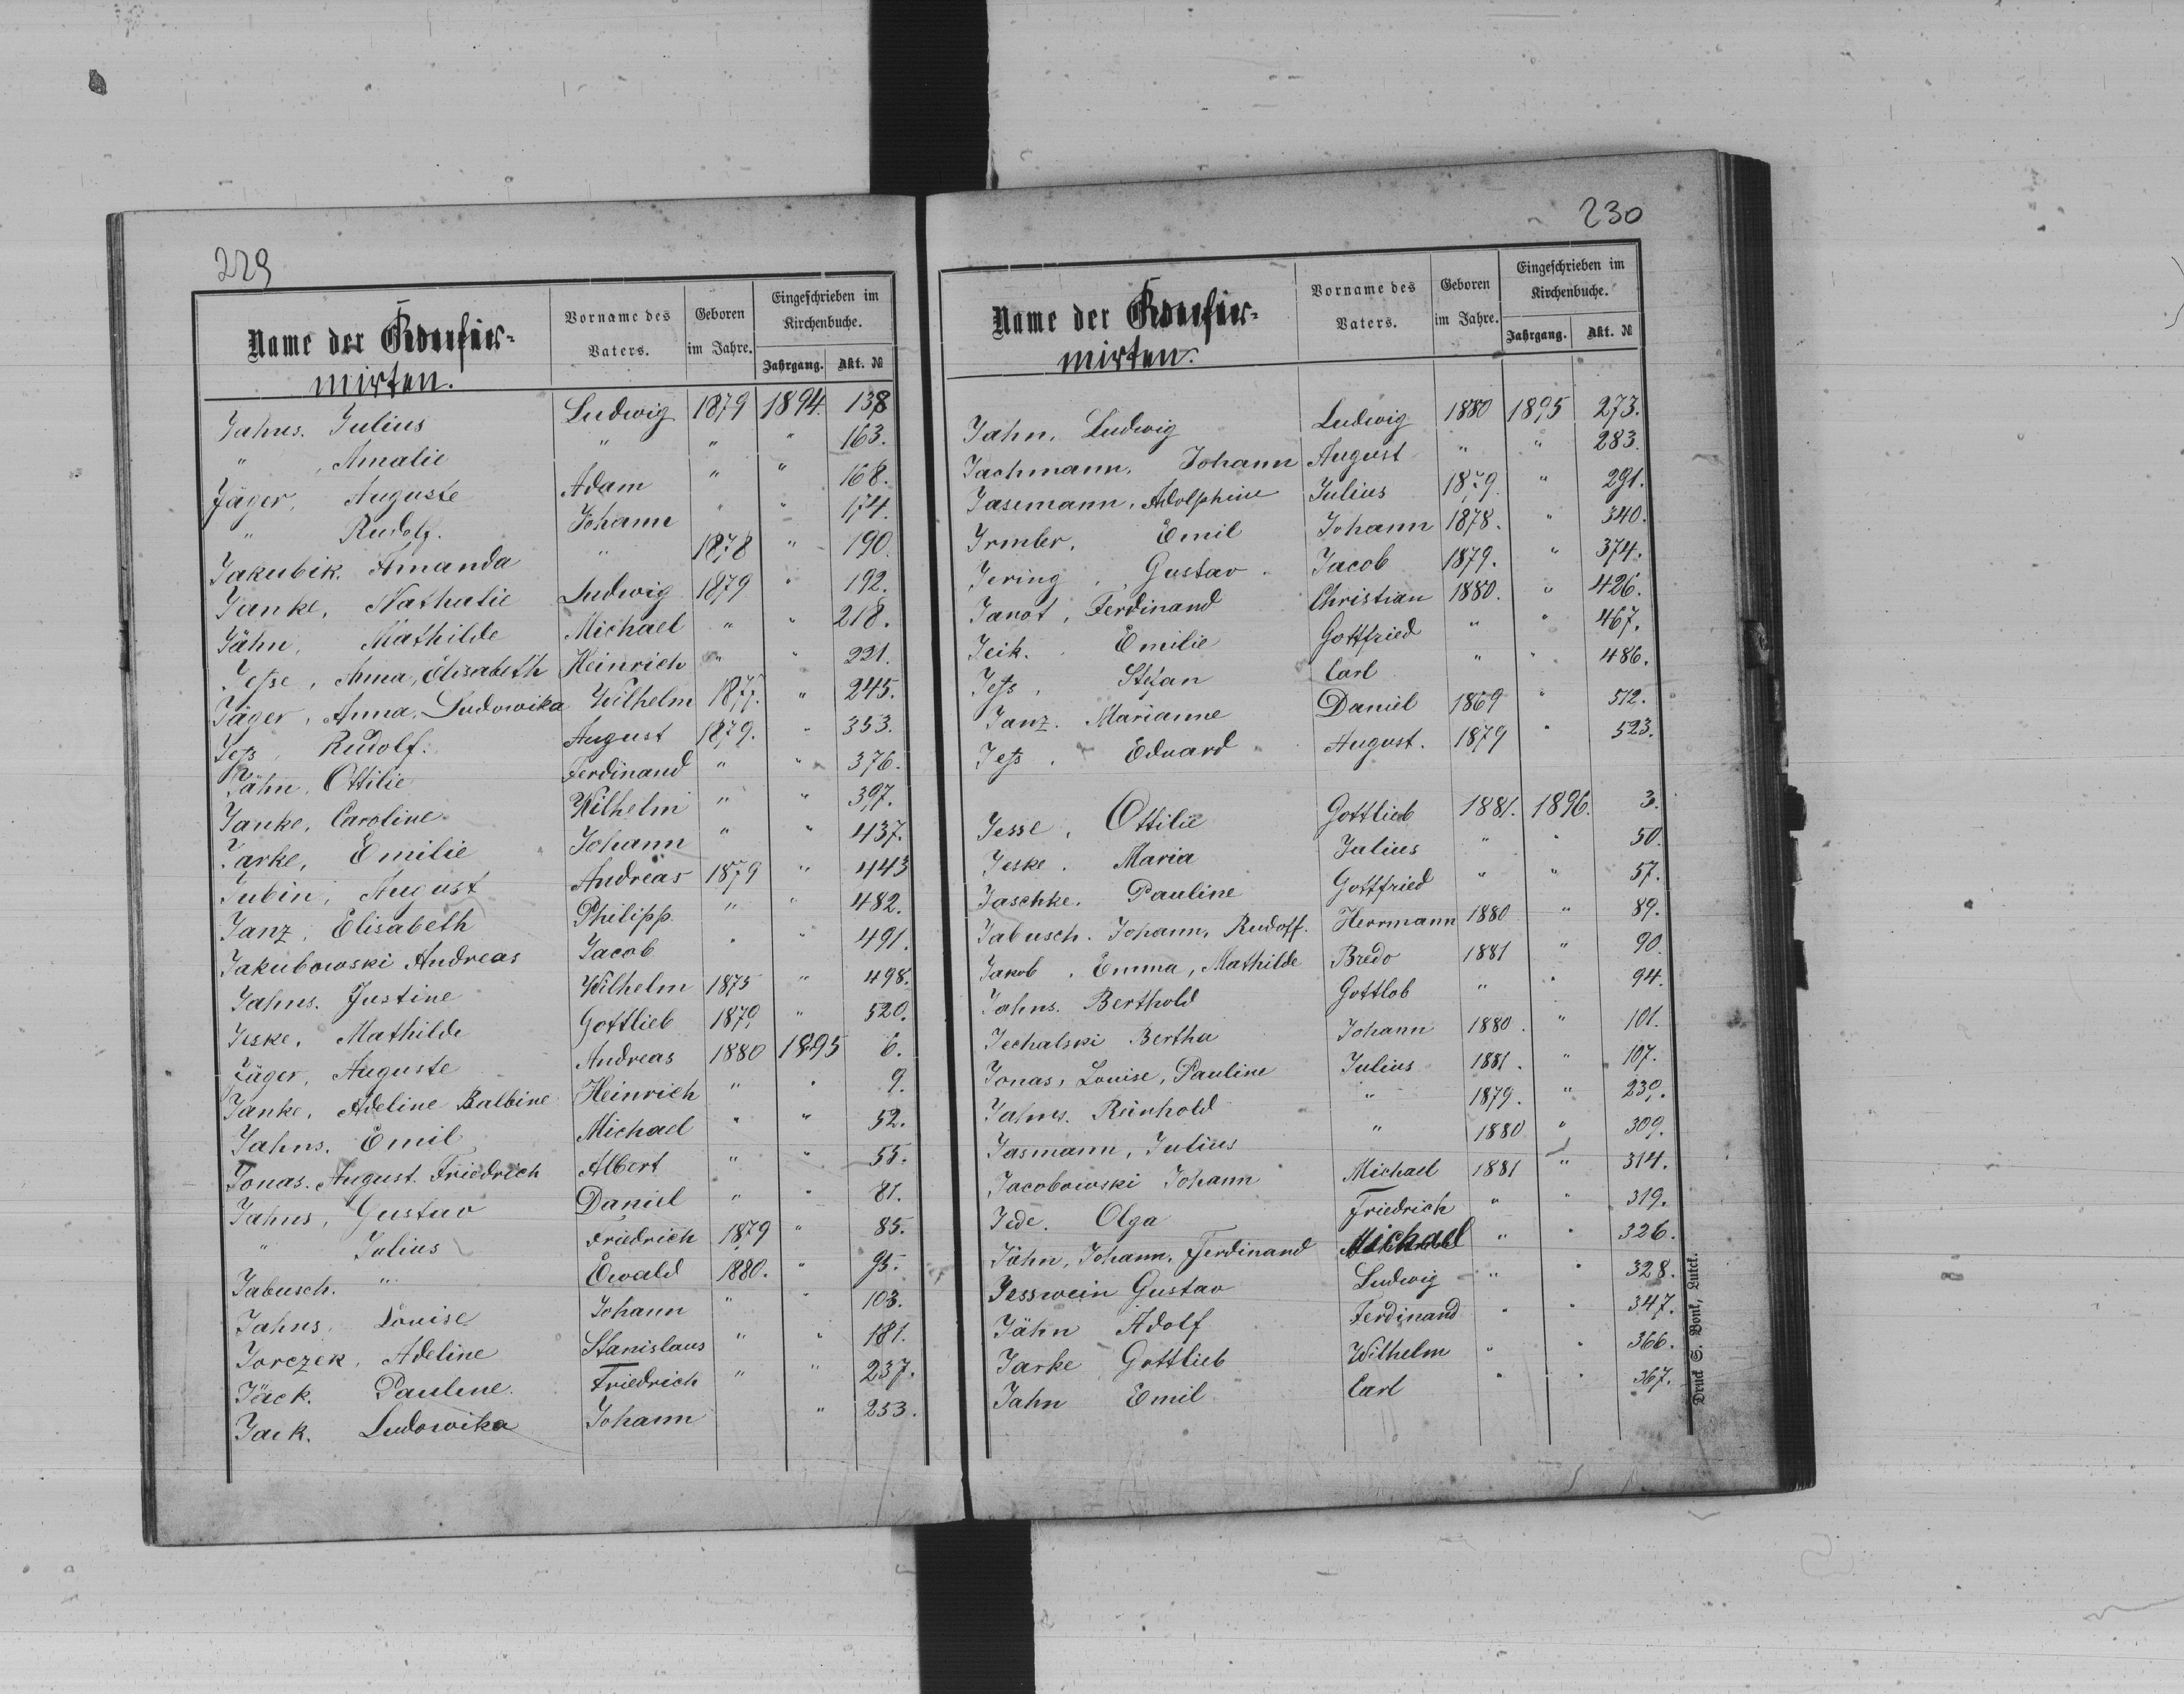 229
Name der Konfir-
mirten.
Vorname des Vaters.
Geboren im Jahre.
Eingeschrieben im Kirchenbuche.
Jahrgang. Akt. №
Jahns. Julius Ludwig 1879 1894. 138
" , Amalie " " " 163.
Jäger, Auguste Adam " " 168.
" Rudolf. Johann " " 174.
Jakubik. Amanda " 1878 " 190.
Janke, Nathalie Ludwig 1879 " 192.
Jähn, Mathilde Michael " " 218.
Jesse, Anna, Elisabeth Heinrich " " 221.
Jäger, Anna, Ludowika Wilhelm 1877. " 245.
Jess, Rudolf. August 1879. " 353.
Jähn, Ottilie Ferdinand " " 376.
Janke, Caroline Wilhelm " " 397.
Jarke, Emilie Johann " " 437.
Jubin, August Andreas 1879 " 443
Janz, Elisabeth Philipp " " 482.
Jakubowski Andreas Jacob " " 491.
Jahns. Justine Wilhelm 1875 " 498.
Jeske, Mathilde Gottlieb 1879 " 520.
Jäger, Auguste Andreas 1880 1895 6.
Janke, Adeline Balbine Heinrich " " 9.
Jahns. Emil Michael " " 52.
Jonas. August. Friedrich Albert " " 55.
Jahns, Gustav Daniel " " 81.
" Julius Friedrich 1879 " 85.
Jabusch. " Ewald 1880. " 95.
Jahns, Louise Johann " " 103.
Jorczek, Adeline Stanislaus " " 181.
Jäck. Pauline. Friedrich " " 237.
Jack. Ludowika Johann " 253.
230
Name der Konfir-
mirten.
Vorname des Vaters.
Geboren im Jahre.
Eingeschrieben im Kirchenbuche.
Jahrgang. Akt. №
Jahn, Ludwig Ludwig 1880 1895 273.
Jachmann, Johann August " " 283.
Jasemann, Adolphine Julius 1879. " 291.
Irmler, Emil Johann 1878. " 340.
Jering, Gustav Jacob 1879. " 374.
Janot, Ferdinand Christian 1880. " 426.
Jeik. Emilie Gottfried " " 467.
Jess, Stefan Carl " " 486.
Janz. Marianne Daniel 1869 " 512.
Jess. Eduard August. 1879 " 523.
Jesse, Ottilie Gottlieb 1881. 1896. 3.
Jeske. Maria Julius " " 50.
Jaschke. Pauline Gottfried " " 57.
Jabusch. Johann, Rudolf. Herrmann 1880 " 89.
Jakob, Emma, Mathilde Bredo 1881 " 90.
Jahns. Berthold Gottlob " " 94.
Jechalski Bertha Johann 1880. " 101.
Jonas, Louise, Pauline Julius 1881. " 107.
Jahns. Reinhold " 1879. " 239.
Jasmann, Julius " 1880 " 309.
Jacobowski Johann Michael 1881 " 314.
Jede. Olga Friedrich " " 319.
Jähn, Johann, Ferdinand Michael " " 326.
Jesswein Gustav Ludwig " " 328.
Jähn Adolf Ferdinand " " 347.
Jarke Gottlieb Wilhelm " " 366.
Jahn Emil Carl " " 367.
Druck S. Bonk, Lutck.